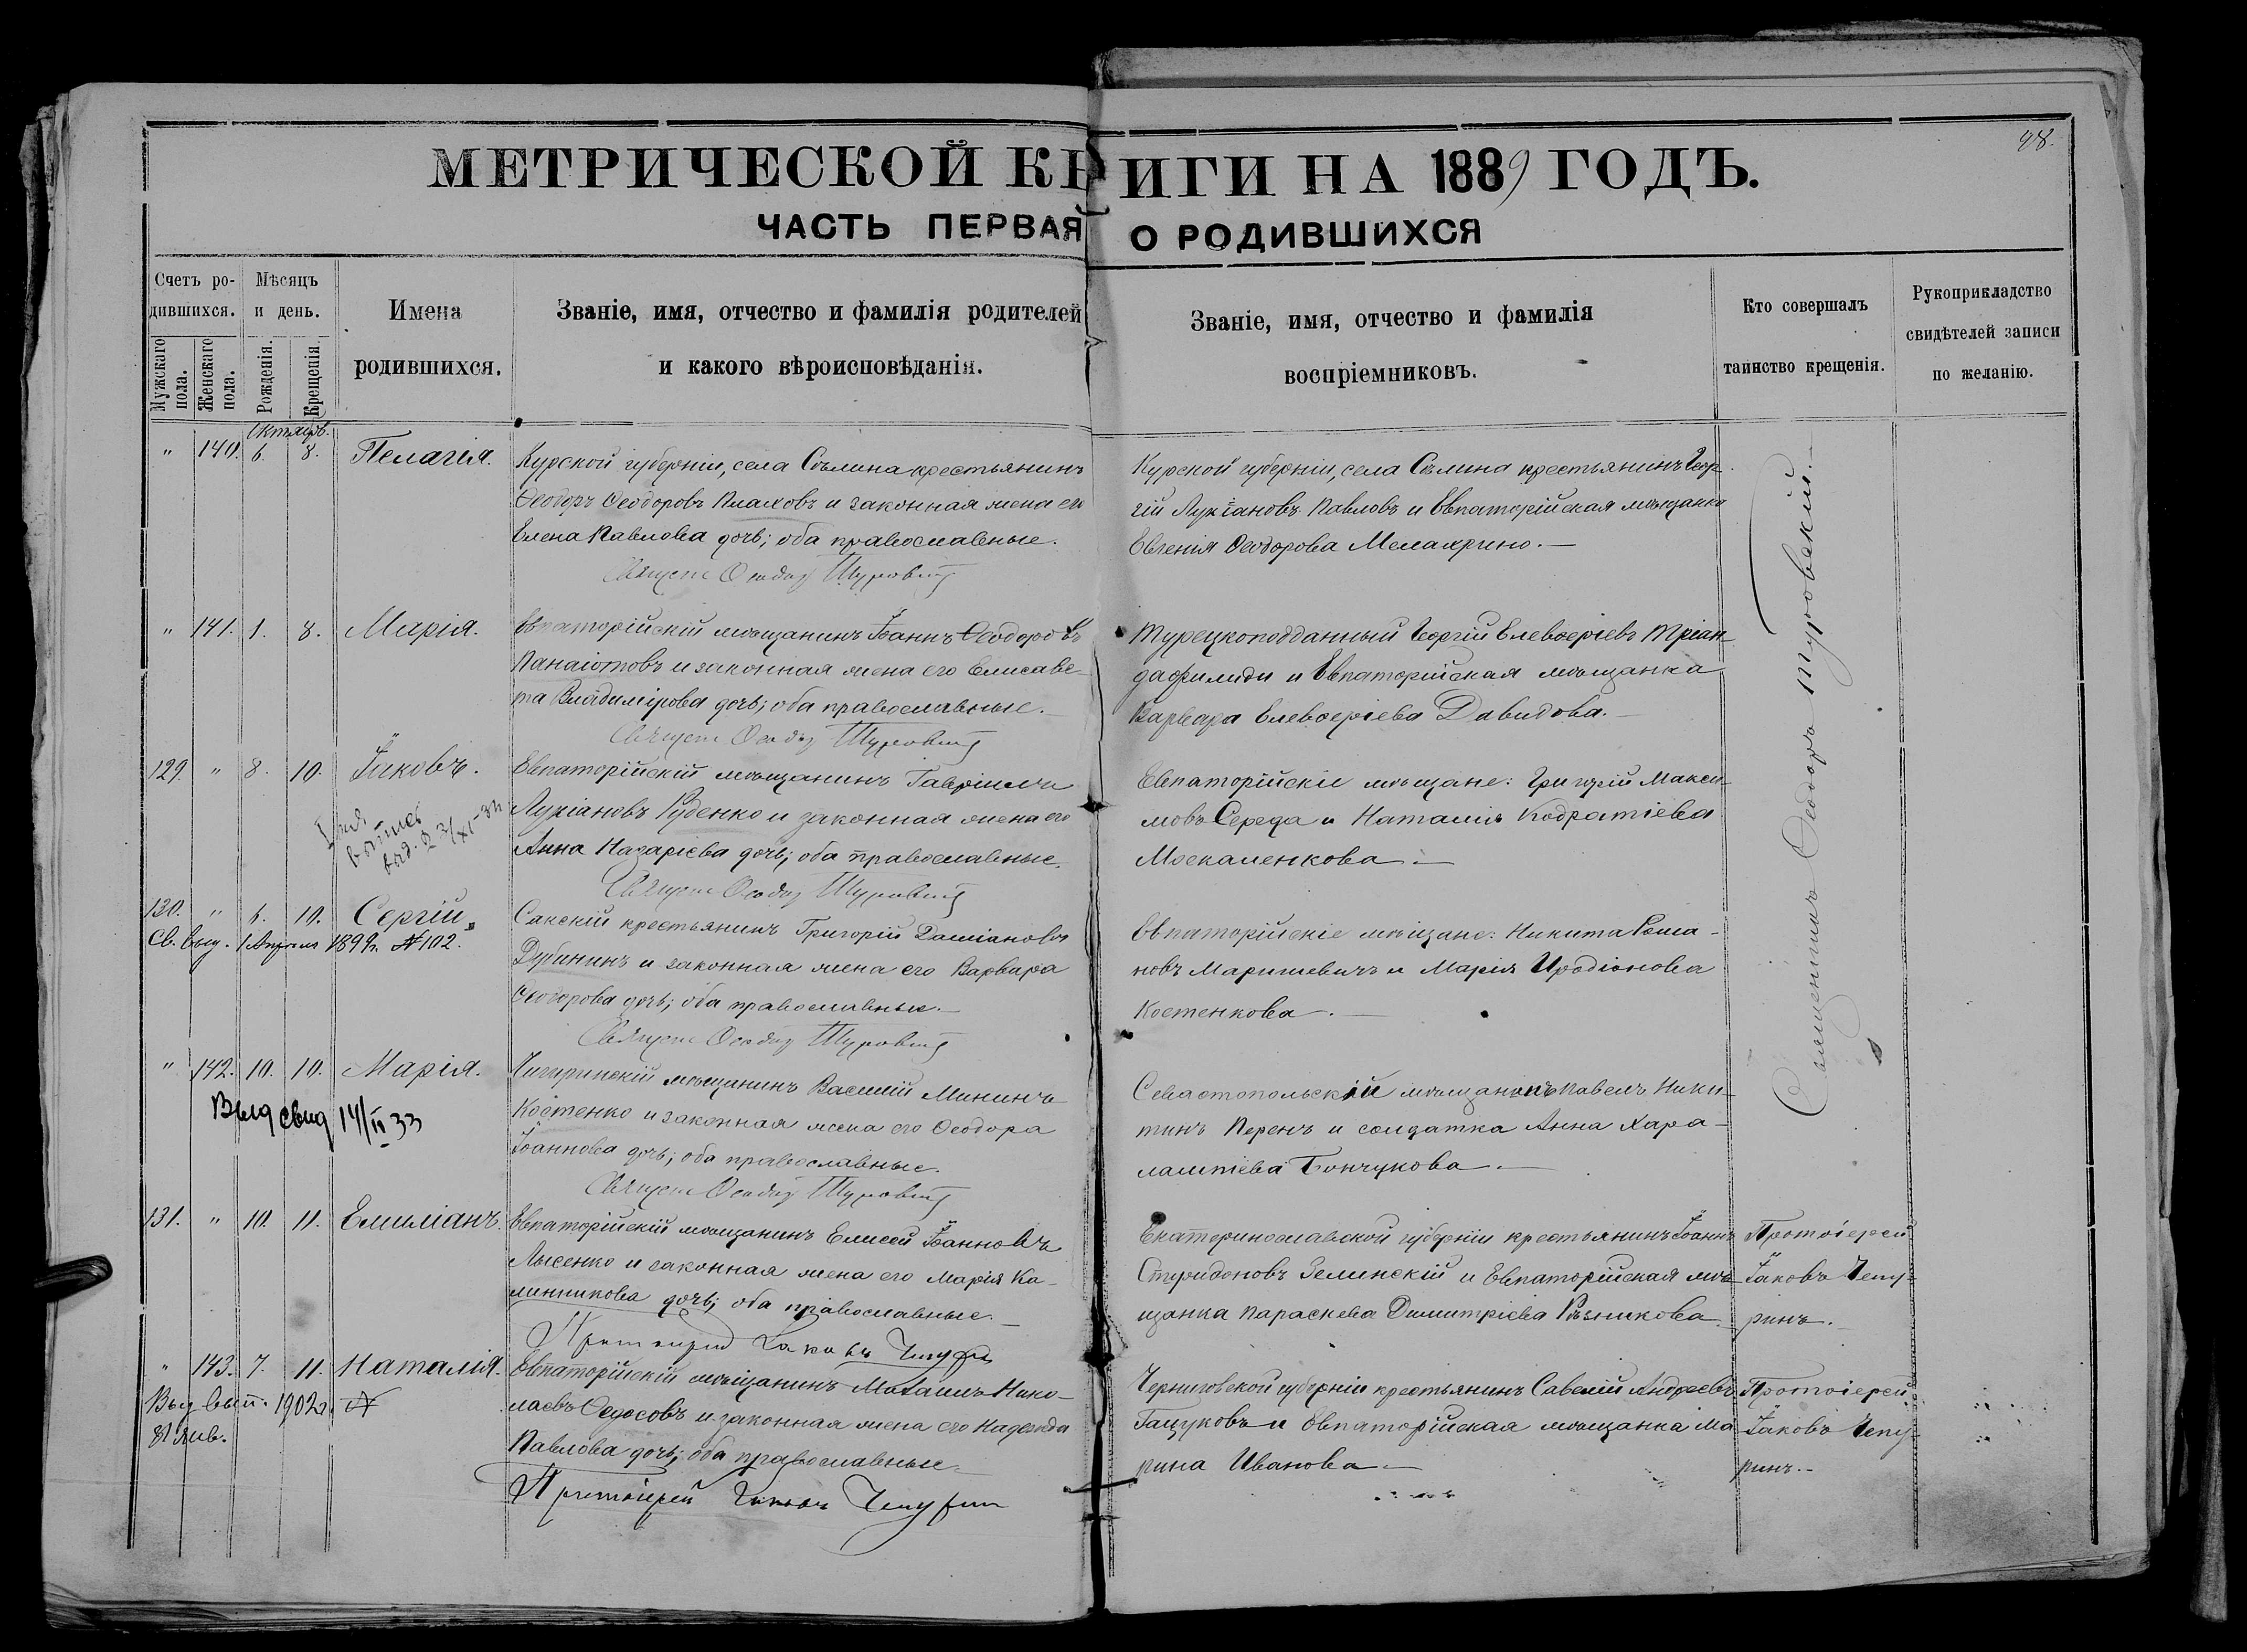 МЕТРИЧЕСКОЙ КНИГИ НА 1889 ГОДЪ.
98.
ЧАСТЬ ПЕРВАЯ О РОДИВШИХСЯ
Счетъ ро-
дившихся.
Мужскаго
пола.
Женскаго
пола.
Мѣсяцъ
и день.
Рожденія.
Крещенія.
Имена
родившихся.
Званіе, имя, отчество и фамилія родителей
и какого вѣроисповѣданія.
Званіе, имя, отчество и фамилія
воспріемниковъ.
Кто совершалъ
таинство крещенія.
Рукоприкладство
свидѣтелей записи
по желанію.
Октябрь.
" 140. 6. 8. Пелагія.
Курской губерніи, села Сѣлина крестьянинъ
Ѳеодоръ Ѳеодоровъ Плаховъ и законная жена его
Елена Павлова дочь; оба православные.
Священ Ѳеодоръ Туровский
Курской губерніи, села Сѣлина крестьянинъ Геор-
гій Лукіановъ Павловъ и Евпаторійская мѣщанка
Евгенія Ѳеодорова Мелахрино.—
Священникъ Ѳеодоръ Туровскій.—
" 141. 1. 8. Марія.
Евпаторійскій мѣщанинъ Іоаннъ Ѳеодоровъ
Панаіотовъ и законная жена его Елисаве-
та Владимірова дочь; оба православные.—
Священ Ѳеодоръ Туровский
Турецкоподданный Георгій Елевѳеріевъ Тріан-
дафилиди и Евпаторійская мѣщанка
Варвара Елевѳеріева Давидова.—
129. " 8. 10. Іаковъ.
Евпаторійскій мѣщанинъ Гавріилъ
Лукіановъ Руденко и законная жена его
Анна Назаріева дочь; оба православные.
Священ Ѳеодоръ Туровский
Евпаторійскіе мѣщане: Григорій Макси-
мовъ Середа и Наталія Кодратіева
Москаленкова.—
130. " 6. 10. Сергій
Св. выд. 1 Апрѣля 1899г. № 102.
Сакскій крестьянинъ Григорій Даміановъ
Дубининъ и законная жена его Варвара
Ѳеодорова дочь; оба православные.—
Священ Ѳеодоръ Туровский
Евпаторійскіе мѣщане: Никита Рома-
новъ Маришевичъ и Марія Иродіонова
Костенкова.—
" 142. 10. 10. Марія.
Выд свид 14/II 33
Чигиринскій мѣщанинъ Василій Мининъ
Костенко и законная жена его Ѳеодора
Іоаннова дочь; оба православные.
Священ Ѳеодоръ Туровский
Севастопольскій мѣщанинъ Павелъ Ники-
тинъ Перенъ и солдатка Анна Хара-
лампіева Бончукова.—
131. " 10. 11. Емиліанъ.
Евпаторійскій мѣщанинъ Елисей Іоанновъ
Лысенко и законная жена его Марія Ка-
линникова дочь; оба православные.—
Протоіерей Іаковъ Чепурин
Екатеринославской губерніи крестьянинъ Іоаннъ
Спиридоновъ Зелинскій и Евпаторійская мѣ-
щанка Параскева Димитріева Рѣзникова.
Протоіерей
Іаковъ Чепу-
ринъ.
" 143. 7. 11. Наталія.
Выд вып. 1902г.
31 янв.
Евпаторійскій мѣщанинъ Михаилъ Нико-
лаевъ Ѳедосовъ и законная жена его Надежда
Павлова дочь; оба православные.
Протоіерей Іаковъ Чепурин
Черниговской губерніи крестьянинъ Савелій Андреевъ
Гащуковъ и Евпаторійская мѣщанка Ма-
рина Иванова.—
Протоіерей
Іаковъ Чепу-
ринъ.—